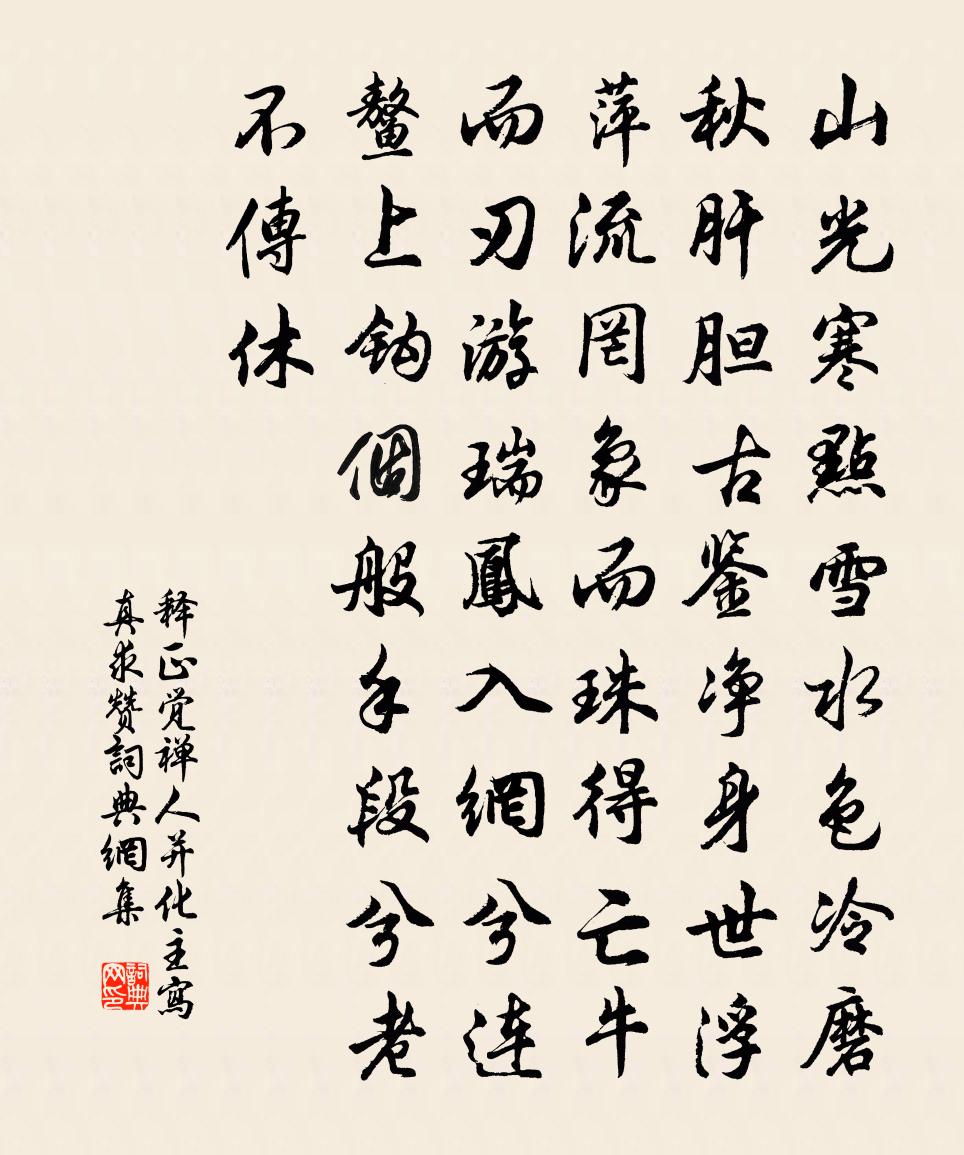 山光寒點雪水色冷磨
秋肝胆古鉴净身世浮
萍流罔象而珠得亡牛
而刃游瑞鳳入網兮連
鳌上鈎個般手段兮老
不傳休
释正觉禅人并化主寫
真求赞詞典網集
詞典网印